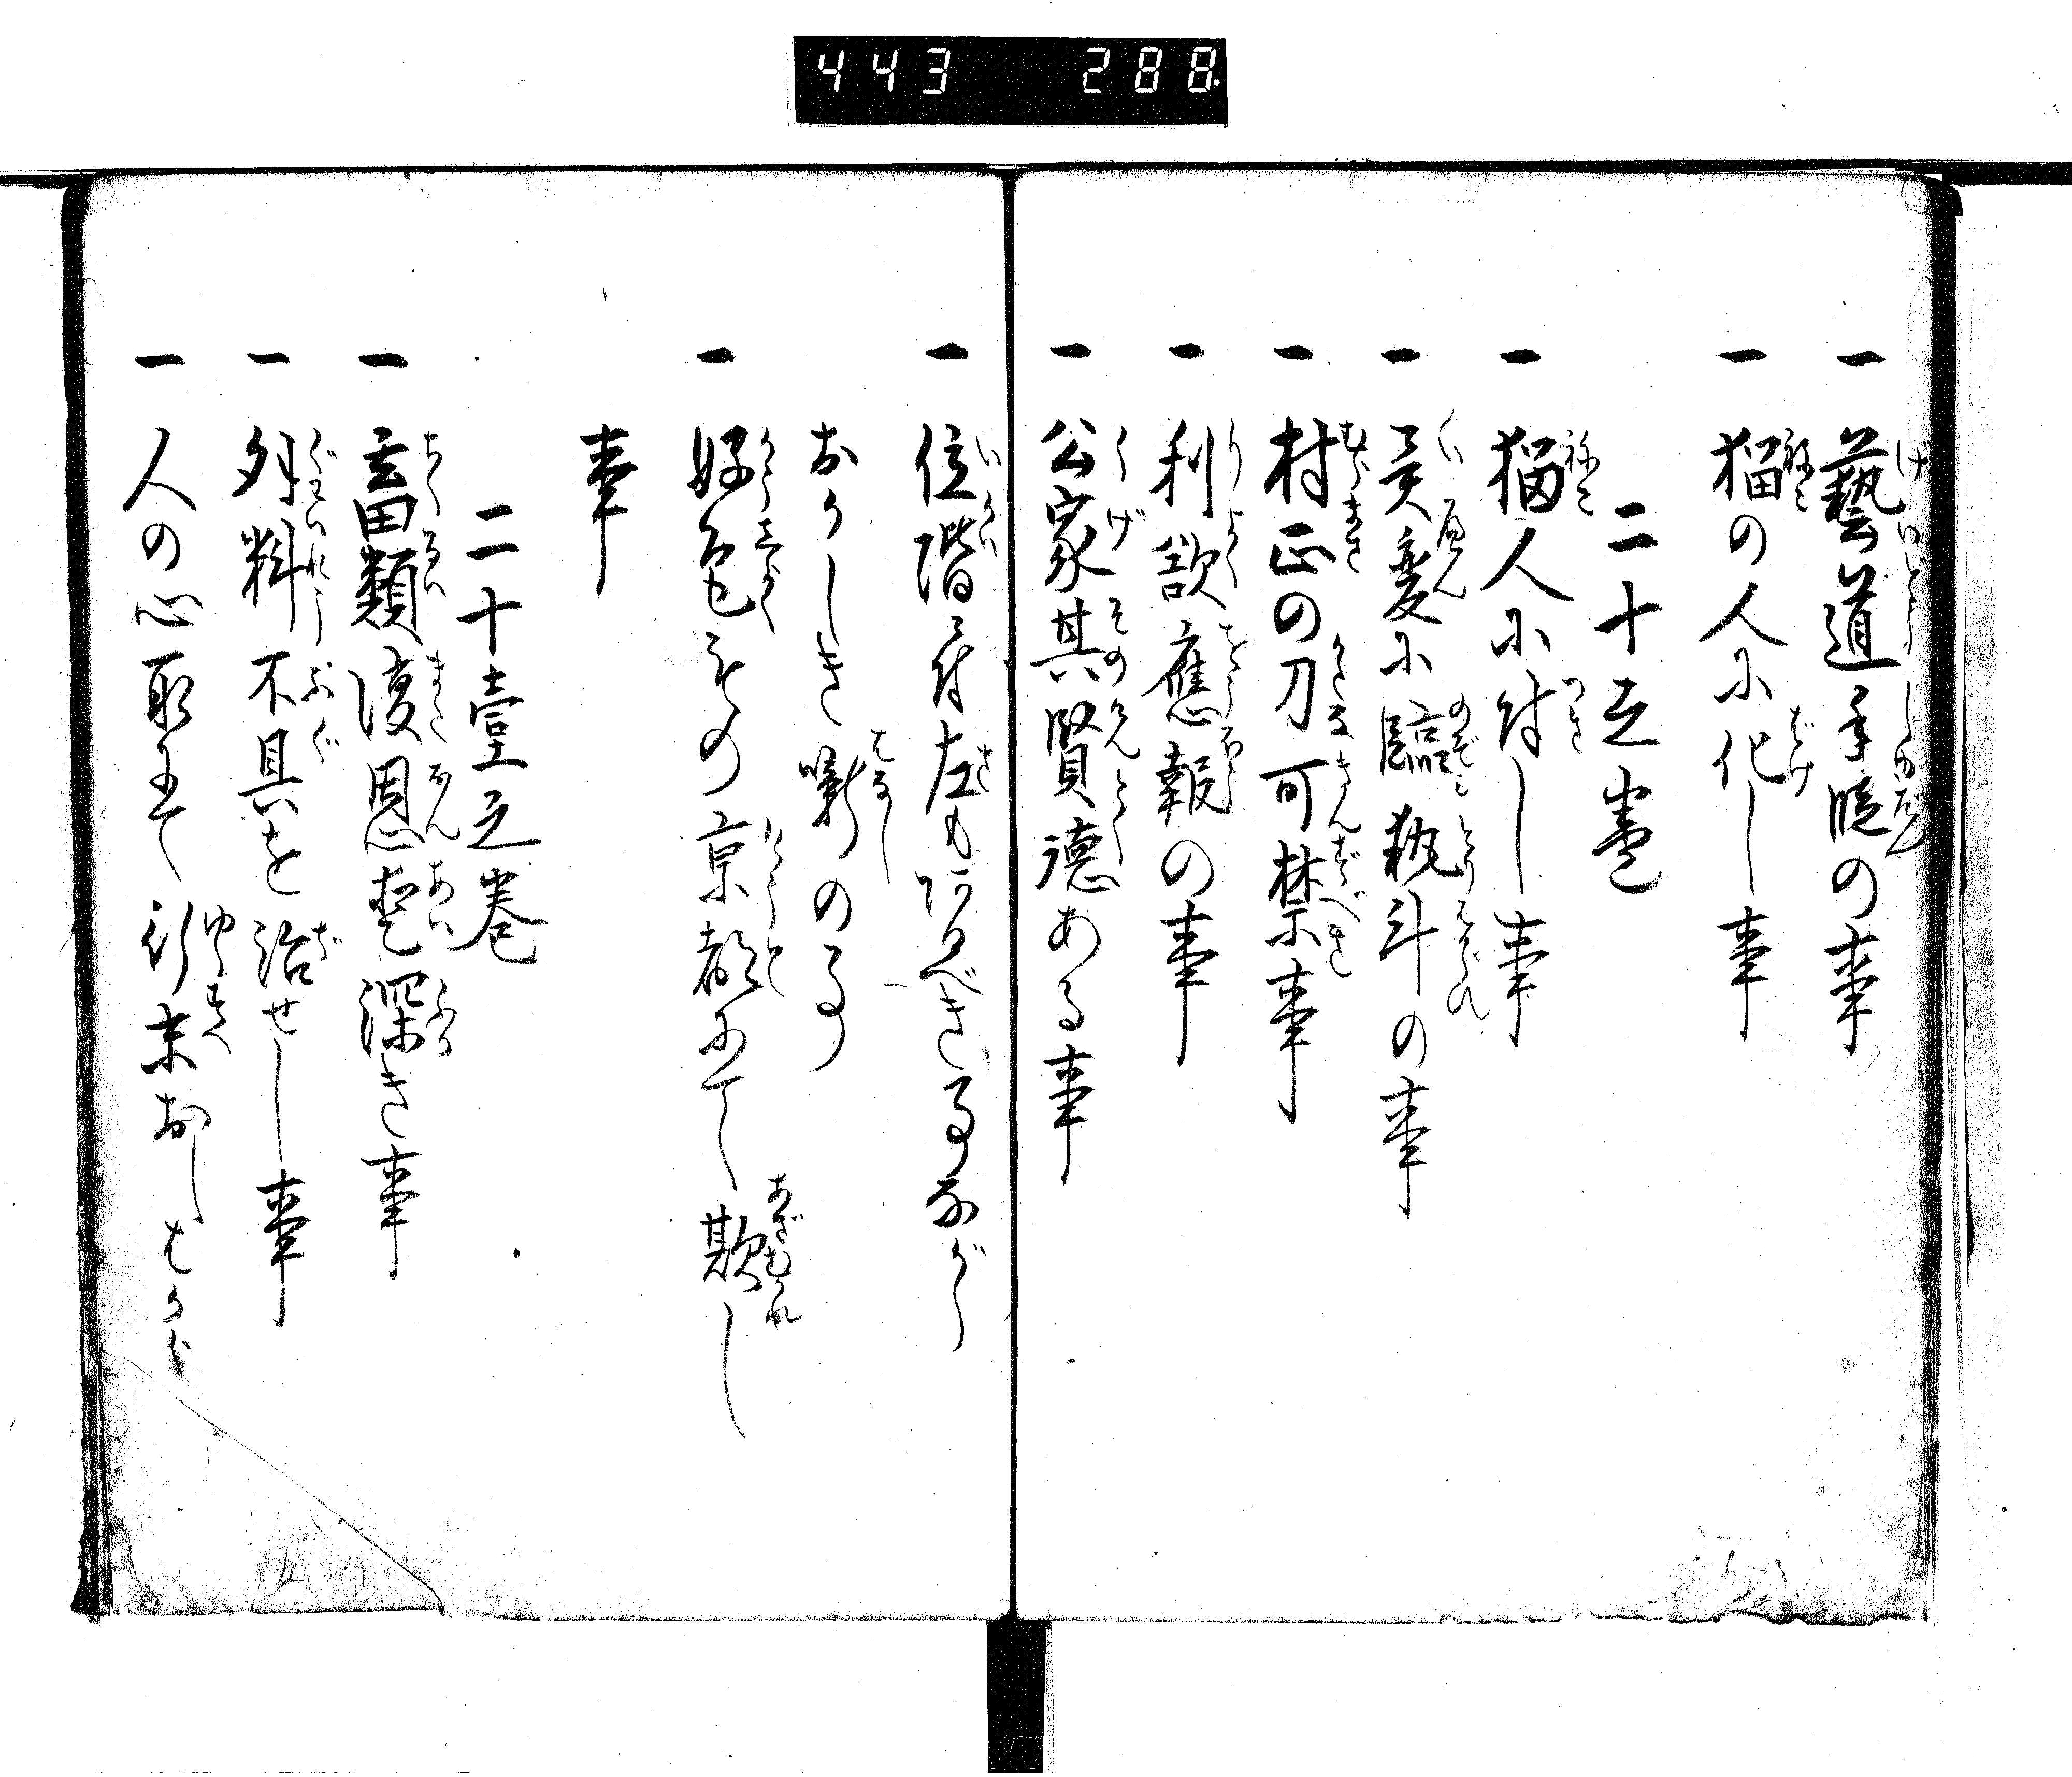 443 288
一 藝道手段の事
一 猫の人に化し事
二十之巻
一 猫人に付し事
一 異変に臨執斗の事
一 村正の刀可禁事
一 利欲應報の事
一 公家其賢徳ある事
一 位階に付左も有べき事ながら
おかしき噺の事
一 好色もの京都にて欺し
事
二十壹之巻
一 畜類復恩愛深き事
一 外科不具を治せし事
一 人の心取にて行末おしはかる